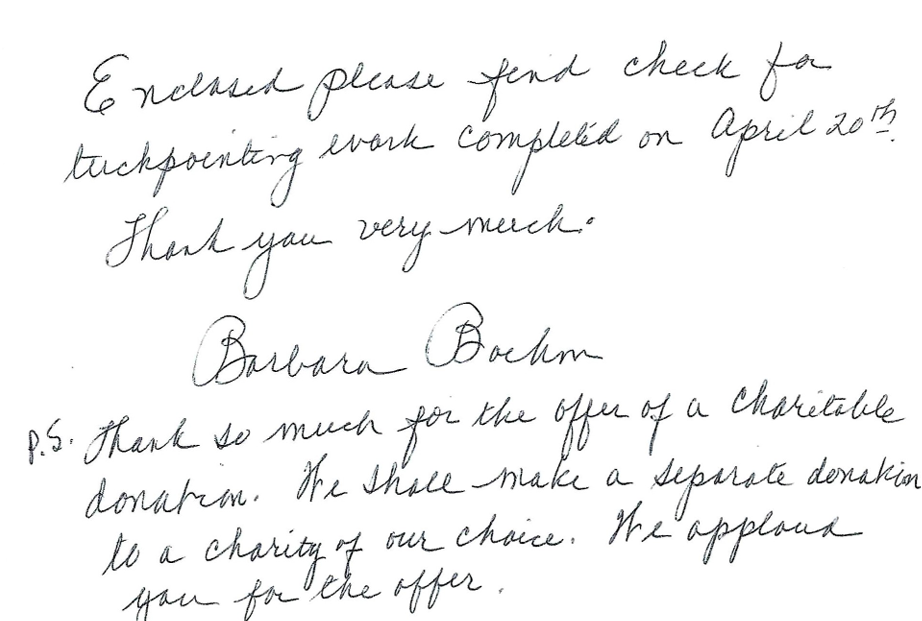 Enclosed please find check for
tuckpointing work completed on April 20th.
Thank you very much.
Barbara Boehm
P.S. Thank so much for the offer of a charitable
donation. We shall make a separate donation
to a charity of our choice. We applaud
you for the offer.